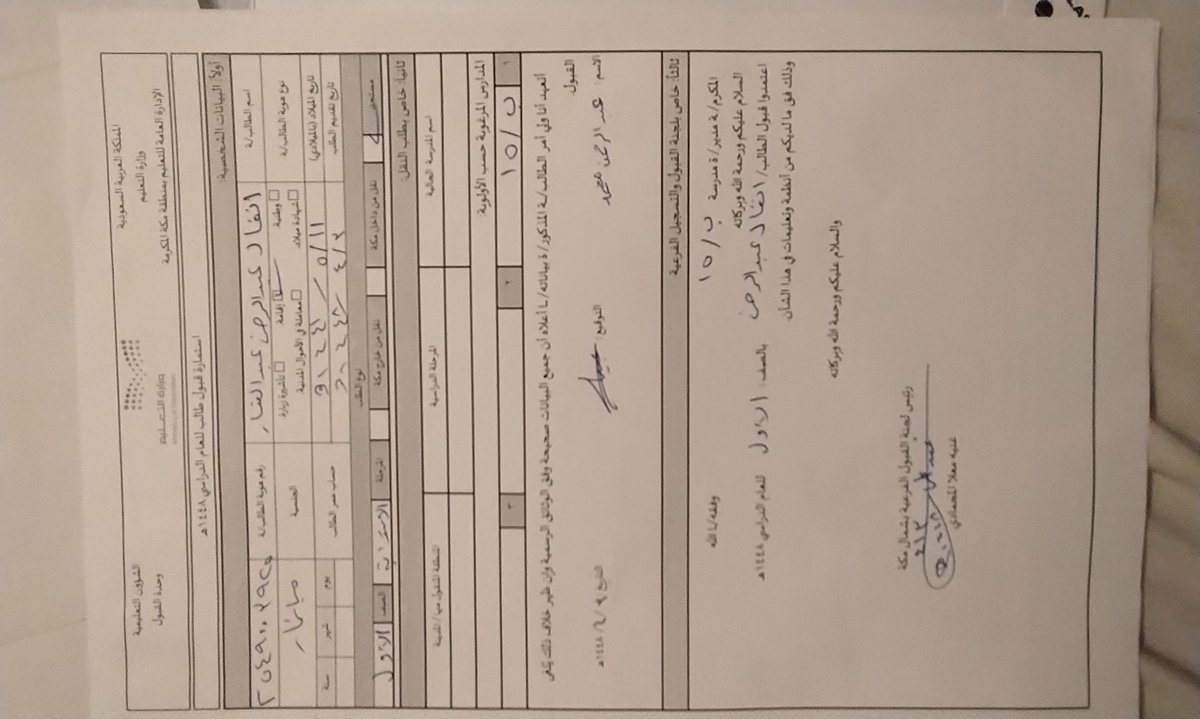 المملكة العربية السعودية
وزارة التعليم
الإدارة العامة للتعليم بمنطقة مكة المكرمة
وزارة التعليم
الشؤون التعليمية
وحدة القبول
استمارة قبول طالب للعام الدراسي ١٤٤٨هـ
أولاً: البيانات الشخصية:
اسم الطالب/ة عبدالرحمن عبدالستار رقم هوية الطالب/ة
نوع هوية الطالب/ة وطنية إقامة تأشيرة زيارة شهادة ميلاد معاملة في الأحوال المدنية الجنسية ميانمار
تاريخ الميلاد (بالميلادي) حساب عمر الطالب يوم شهر سنة
تاريخ تقديم الطلب
نوع الطلب
مستجد نقل من داخل مكة نقل من خارج مكة المرحلة الابتدائي الصف الأول
ثانياً: خاص بطلب النقل:
اسم المدرسة الحالية المرحلة الدراسية المنطقة المنقول منها / المدينة
المدارس المرغوبة حسب الأولوية:
١ ب/١٥ ٢ ٣
أتعهد أنا ولي أمر الطالب/ـة المذكور/ة بياناته/ـا أعلاه أن جميع البيانات صحيحة وفق الوثائق الرسمية وإن ظهر خلاف ذلك يلغى
القبول.
الاسم: عبد الرحمن محمد التوقيع: التاريخ ٩/٢/١٤٤٨هـ
ثالثاً: خاص بلجنة القبول والتسجيل الفرعية
المكرم/ة مدير/ة مدرسة ب/١٥ وفقه/ـا الله
السلام عليكم ورحمة الله وبركاته
اعتمدوا قبول الطالب/ عبدالرحمن بالصف: الأول للعام الدراسي ١٤٤٨هـ
وذلك وفق ما لديكم من أنظمة وتعليمات في هذا الشأن.
والسلام عليكم ورحمة الله وبركاته
رئيس لجنة القبول الفرعية بشمال مكة